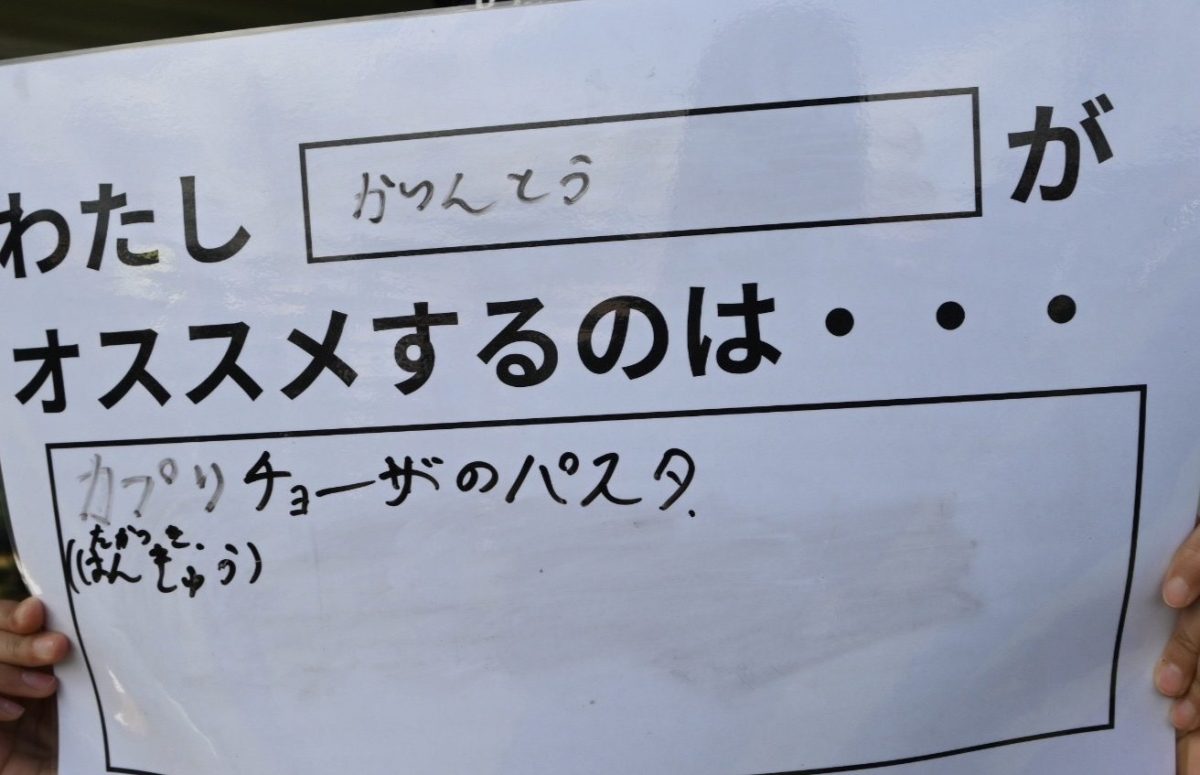 わたし かりんとう が
オススメするのは・・・
カプリチョーザのパスタ.
たかつき.
(はんきゅう)